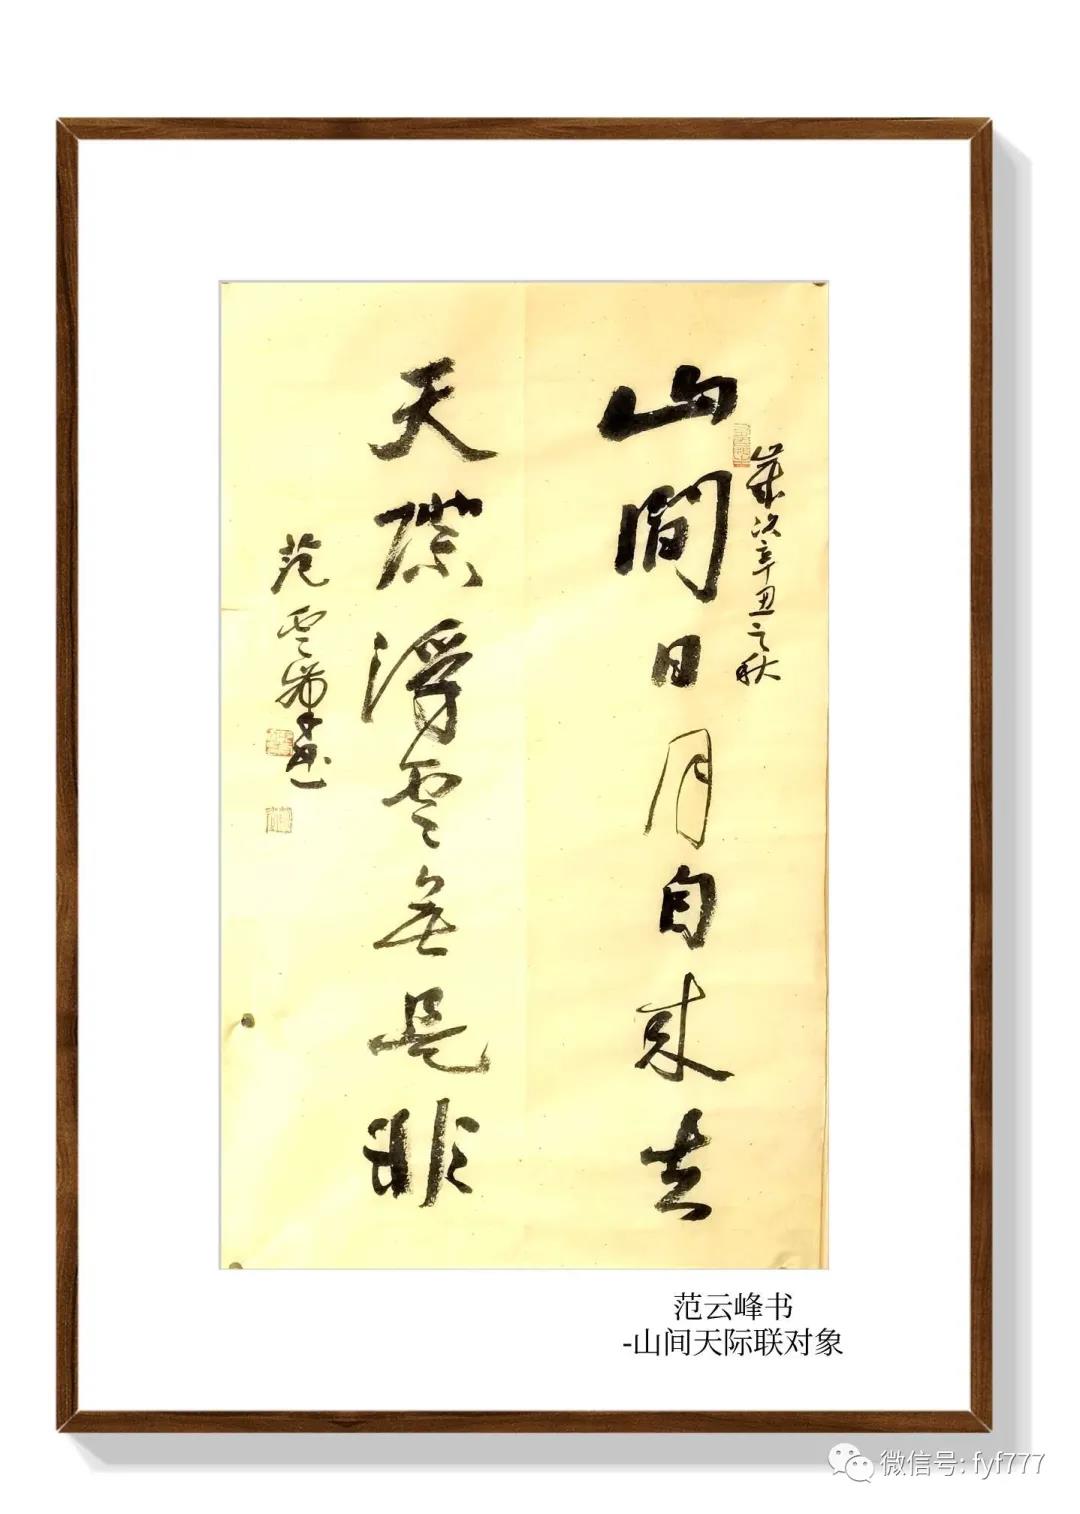 歲次辛丑之秋
山間日月自来去
天際浮雲無是非
范雲峰书
范云峰书
-山间天际联对象
微信号: fyf777